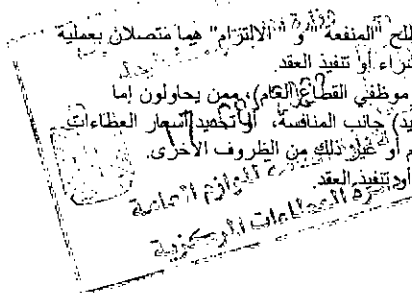 طلح "المنفعة" و "الالتزام" هما متصلان بعملية
شراء أو تنفيذ العقد
موظفي القطاع العام)، ممن يحاولون إما
جانب المنافسة، أو تخميد أسعار العطاءات
م أو غير ذلك من الظروف الأخرى.
أو تنفيذ العقد
اللوازم العامة
العطاءات المركزية